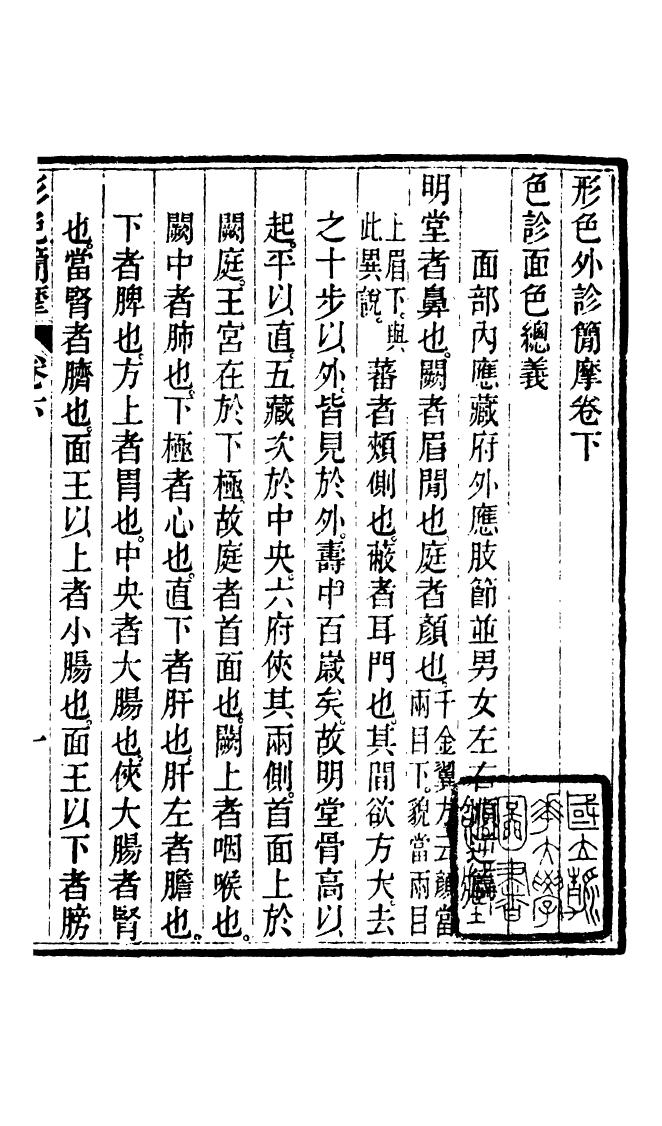 形色外診簡摩卷下
色診面色總義
面部內應藏府外應肢節並男女左右
明堂者鼻也。闕者眉閒也庭者顏也。千金翼方云顏當兩目下。貌當兩目
上眉下。與此異說。蕃者頰側也。蔽者耳門也。其間欲方大。去
之十步以外。皆見於外。壽中百歲矣。故明堂骨高以
起。平以直。五藏次於中央。六府俠其兩側。首面上於
闕庭。王宮在於下極。故庭者首面也。闕上者咽喉也。
闕中者肺也。下極者心也。直下者肝也。肝左者膽也。
下者脾也。方上者胃也。中央者大腸也。俠大腸者腎
也。當腎者臍也。面王以上者小腸也。面王以下者膀
形色簡摩
卷下
一